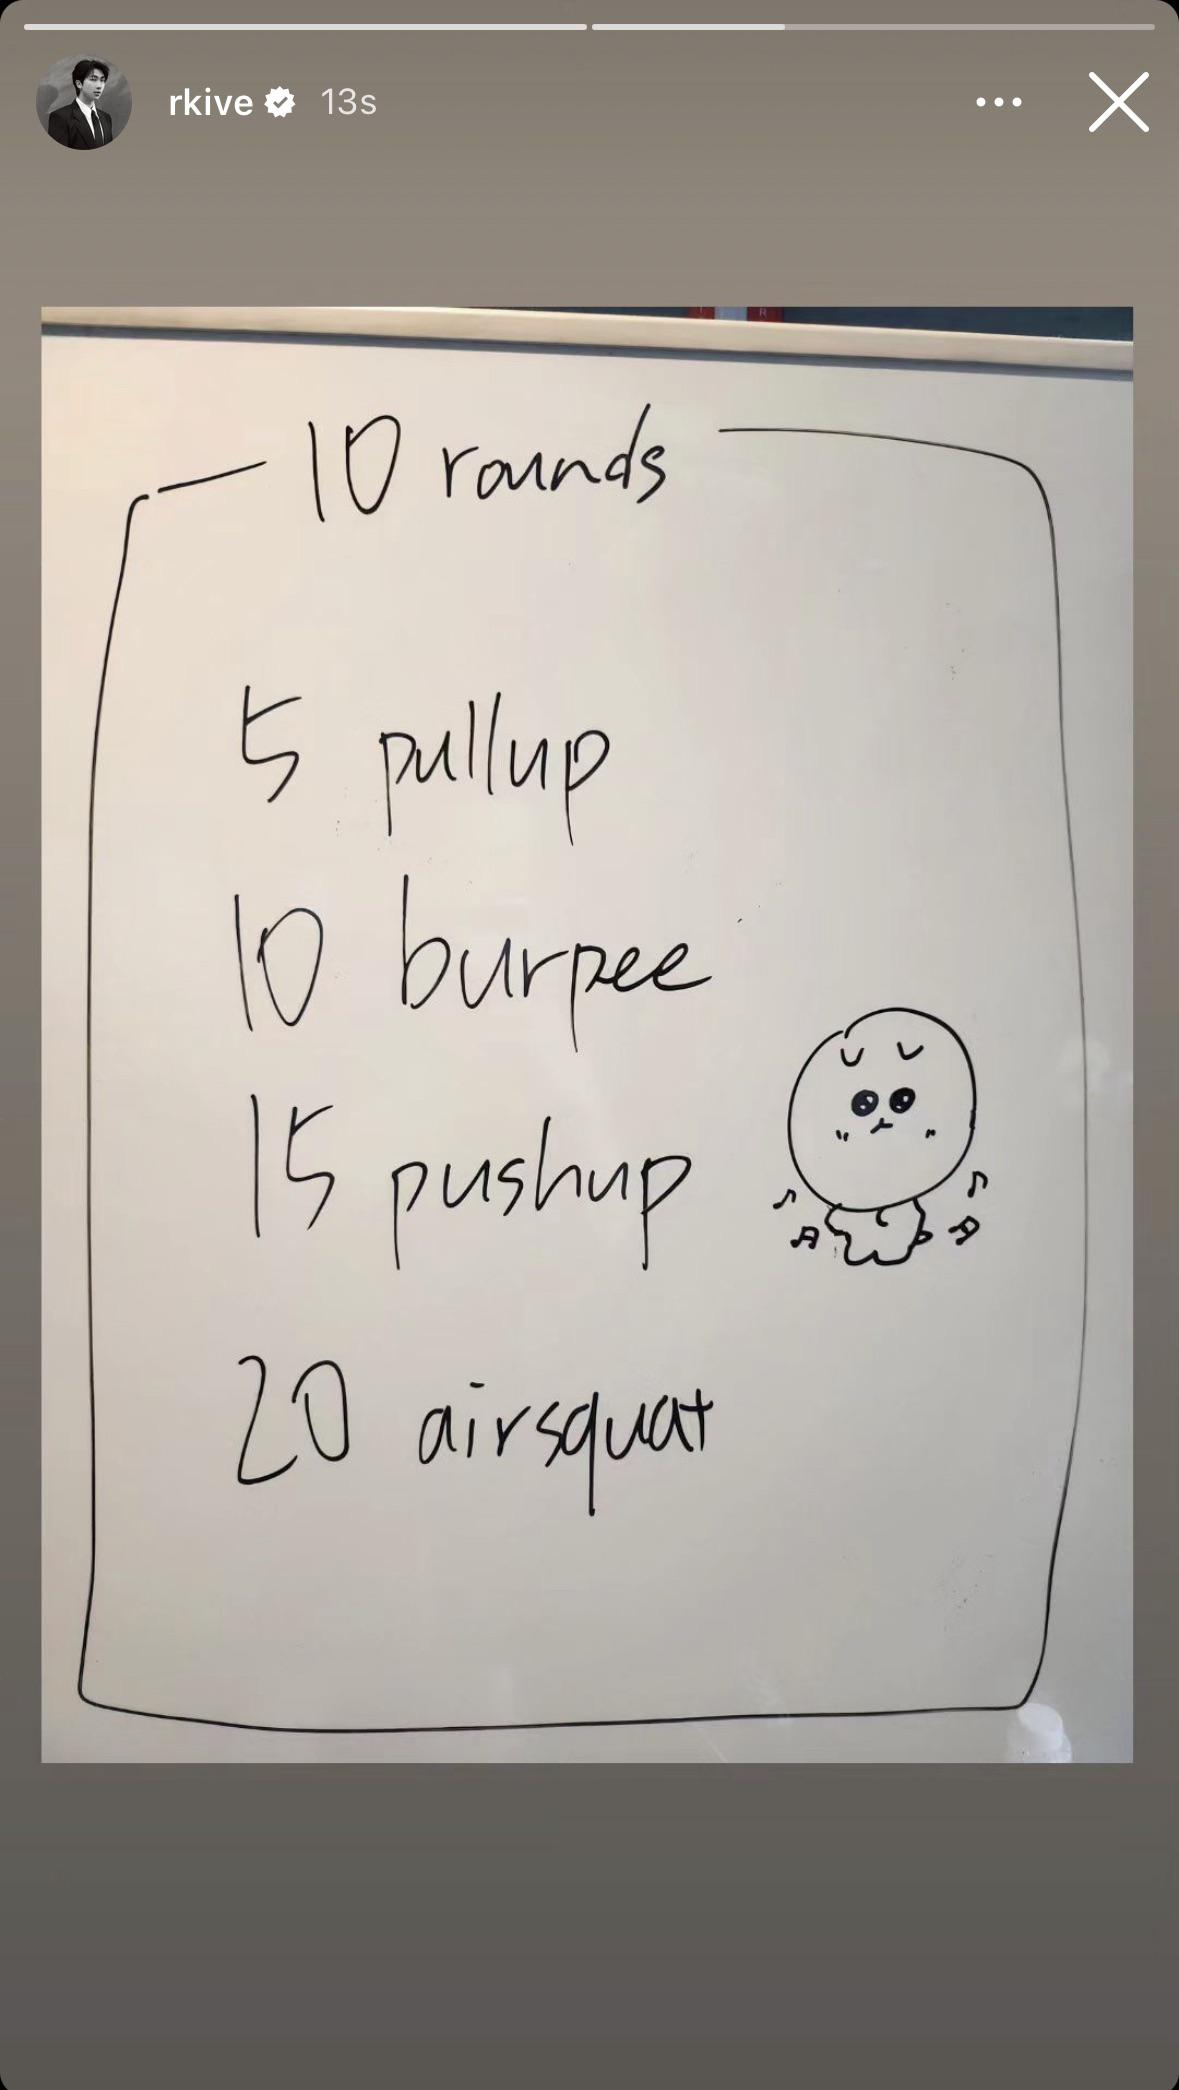 rkive 13s
10 rounds
5 pullup
10 burpee
15 pushup
20 airsquat